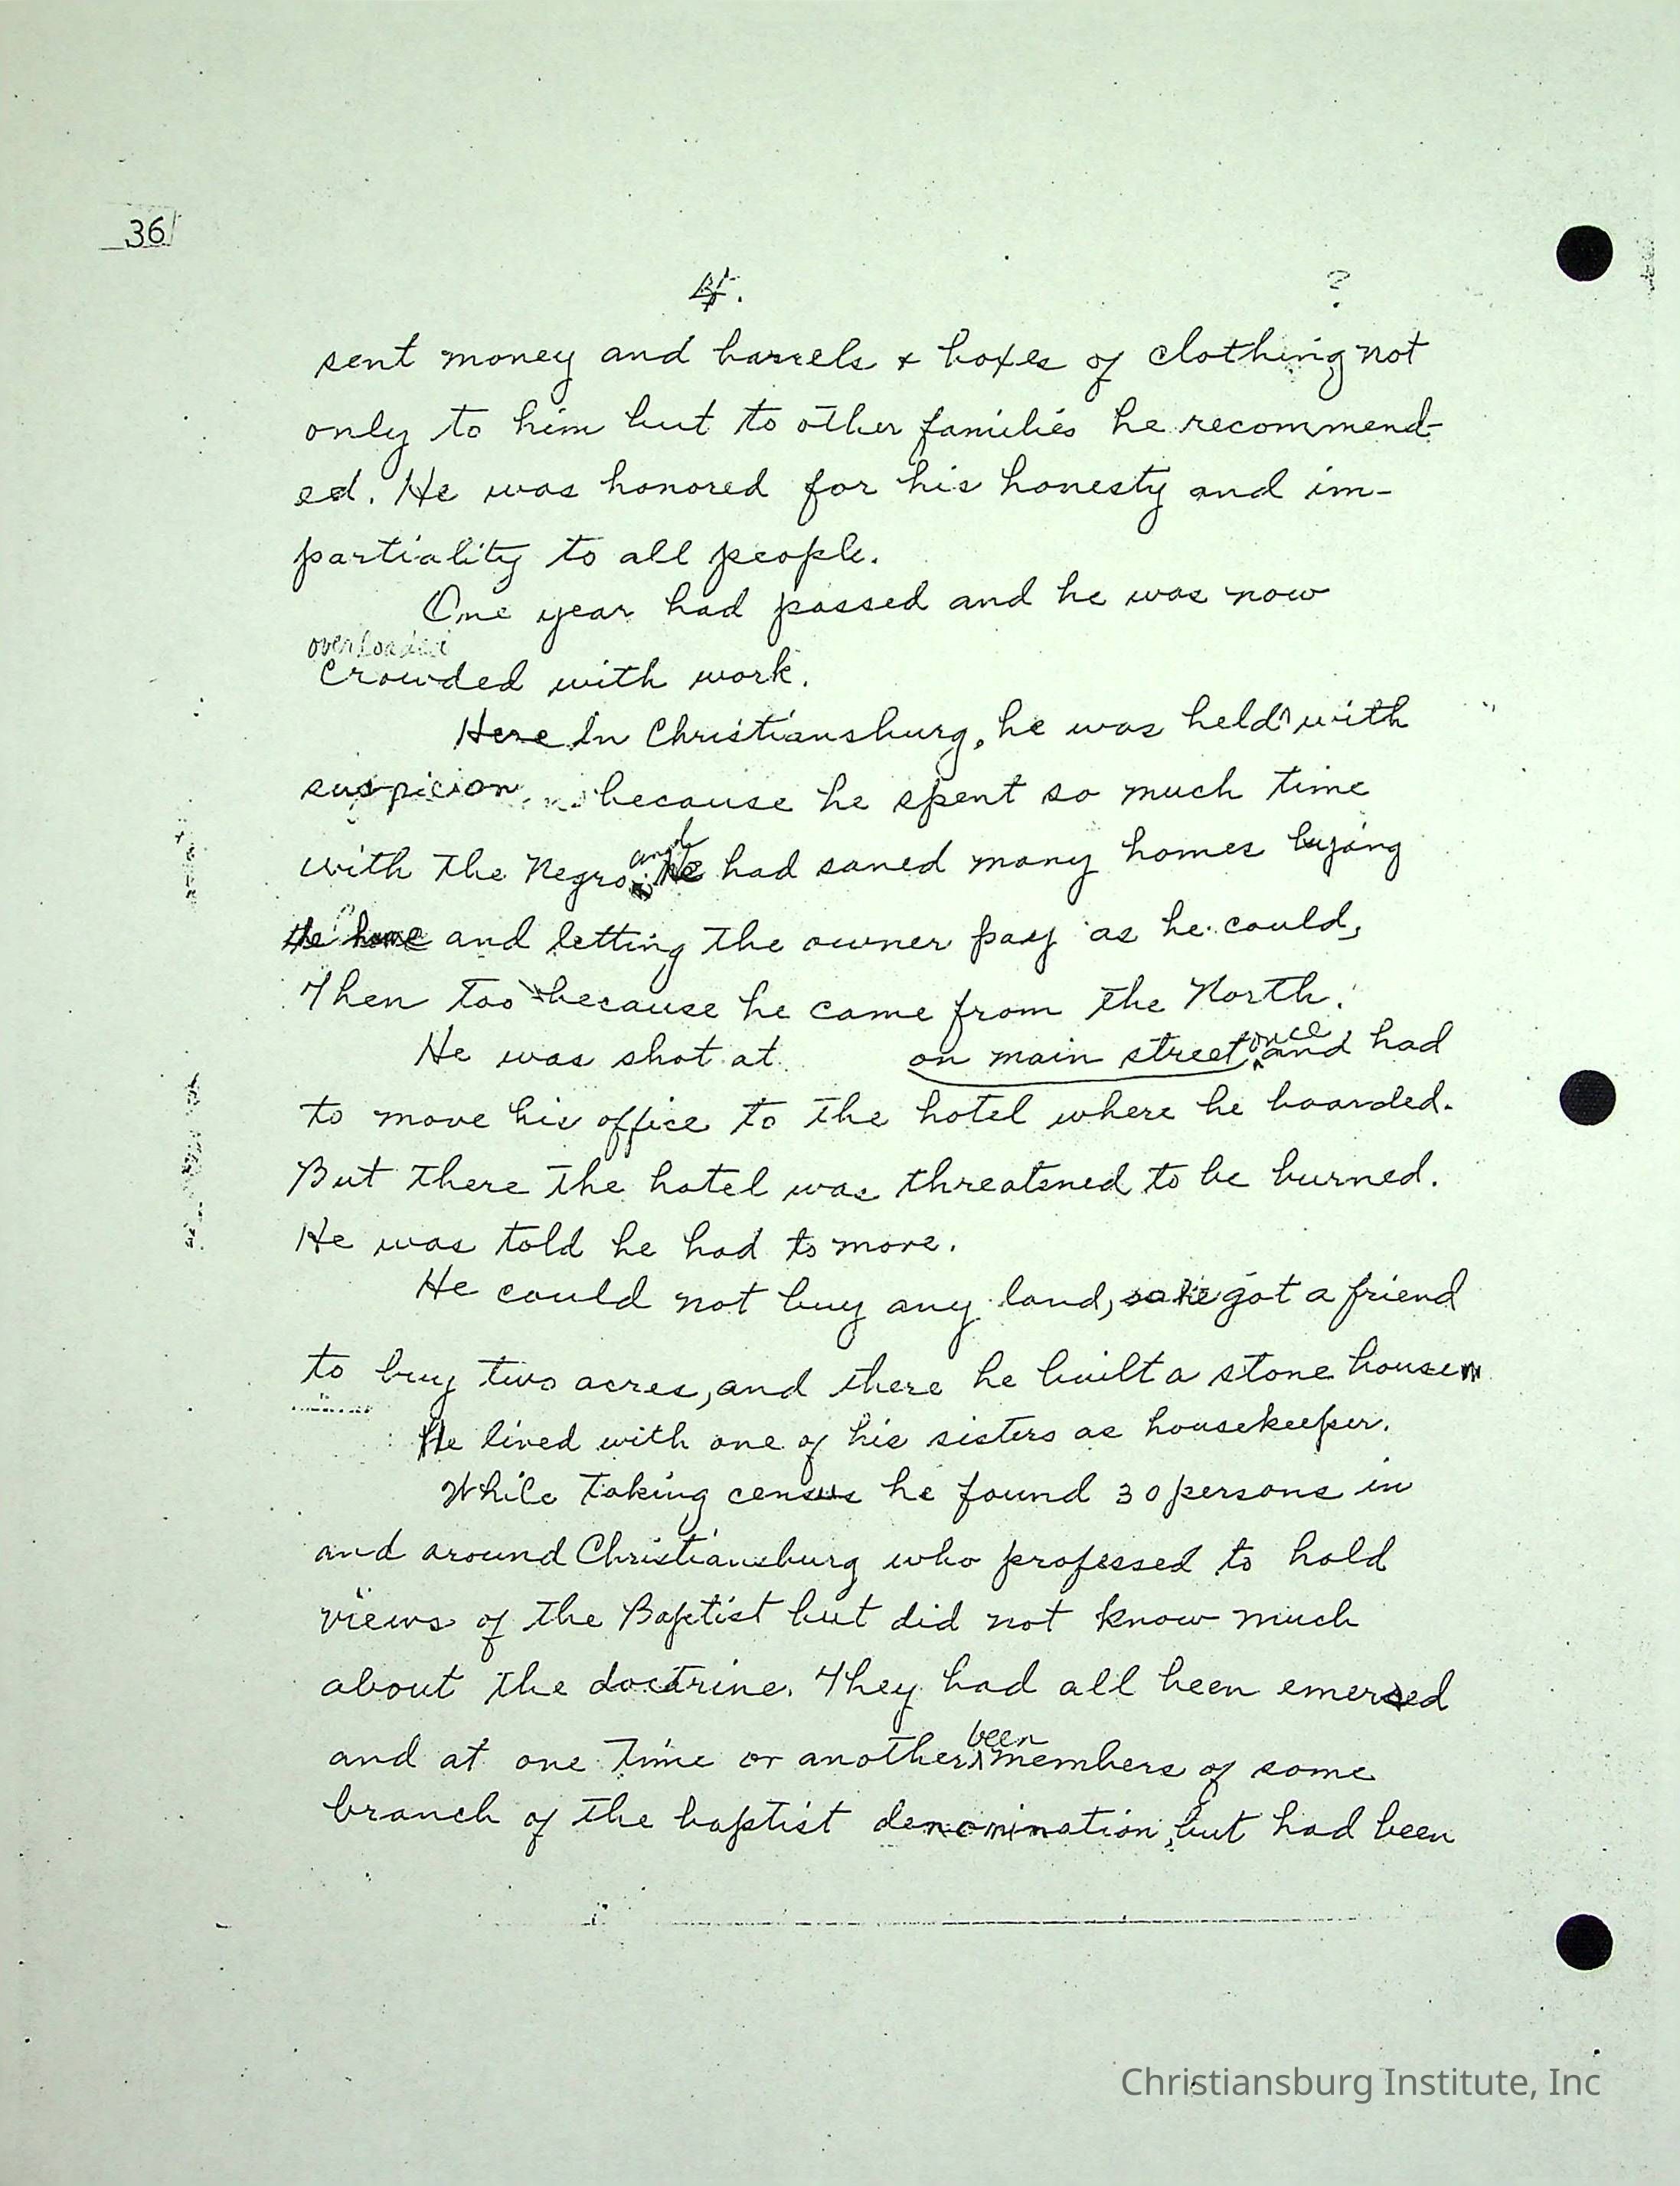 36
4.
?
sent money and barrels & boxes of clothing not
only to him but to other families he recommend-
ed. He was honored for his honesty and im-
partiality to all people.
One year had passed and he was now
overloaded
Crowded with work.
Here In Christiansburg, he was held with
suspicion because he spent so much time
and
with the Negro. He had saved many homes buying
the home and letting the owner pay as he could,
Then too because he came from the North.
once
He was shot at on main street and had
to move his office to the hotel where he boarded.
But there the hotel was threatened to be burned.
He was told he had to move.
He could not buy any land, so he got a friend
to buy two acres, and there he built a stone house
He lived with one of his sisters as housekeeper.
While taking census he found 30 persons in
and around Christiansburg who professed to hold
views of the Baptist but did not know much
about the doctrine. They had all been emersed
been
and at one time or another members of some
branch of the baptist denomination, but had been
Christiansburg Institute, Inc